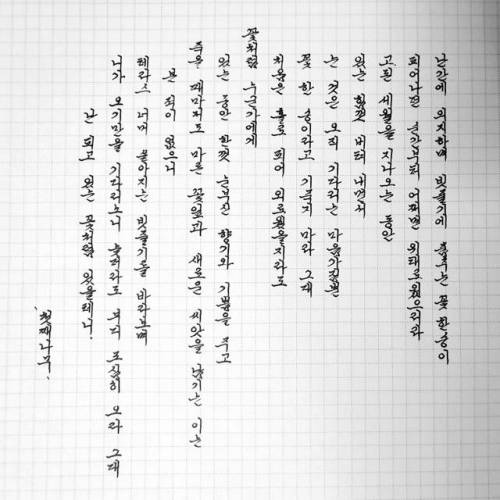 난간에 의지하며 빗줄기에 춤추는 꽃 한송이
피어나면 순간부터 어쩌면 위태로웠으리라
고된 세월을 지나오는 동안
있는 힘껏 버텨 내면서
는 것은 오직 기다리는 마음가짐뿐
꽃 한 송이라고 기죽지 마라 그대
처음은 홀로 피어 외로웠을지라도
꽃처럼 누군가에게
있는 동안 한껏 눈부신 향기와 기쁨을 주고
죽을 때마저도 마른 꽃잎과 새로운 씨앗을 남기는 이는
본 적이 없으니
테라스 너머 쏟아지는 빗줄기를 바라보며
니가 오기만을 기다리노니 늦더라도 부디 조심히 오라 그대
난 피고 있는 꽃처럼 있을테니.
'첫째나무'